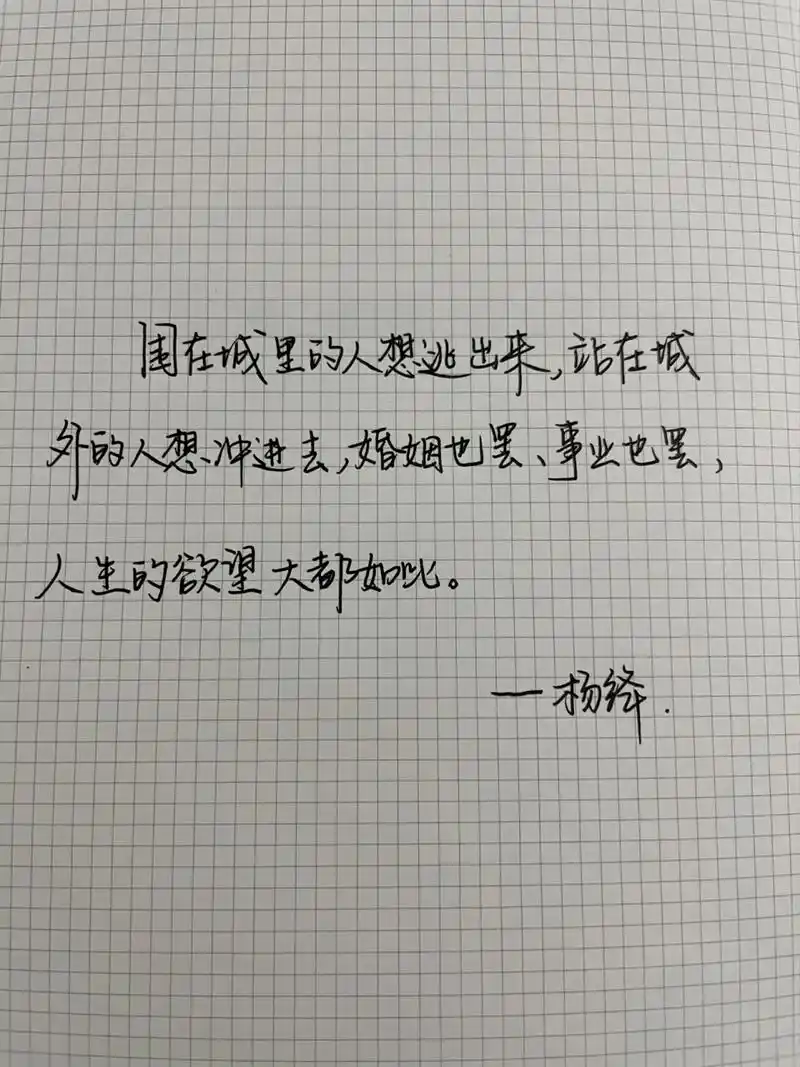 围在城里的人想逃出来,站在城
外的人想冲进去,婚姻也罢、事业也罢,
人生的欲望大都如此。
—杨绛.